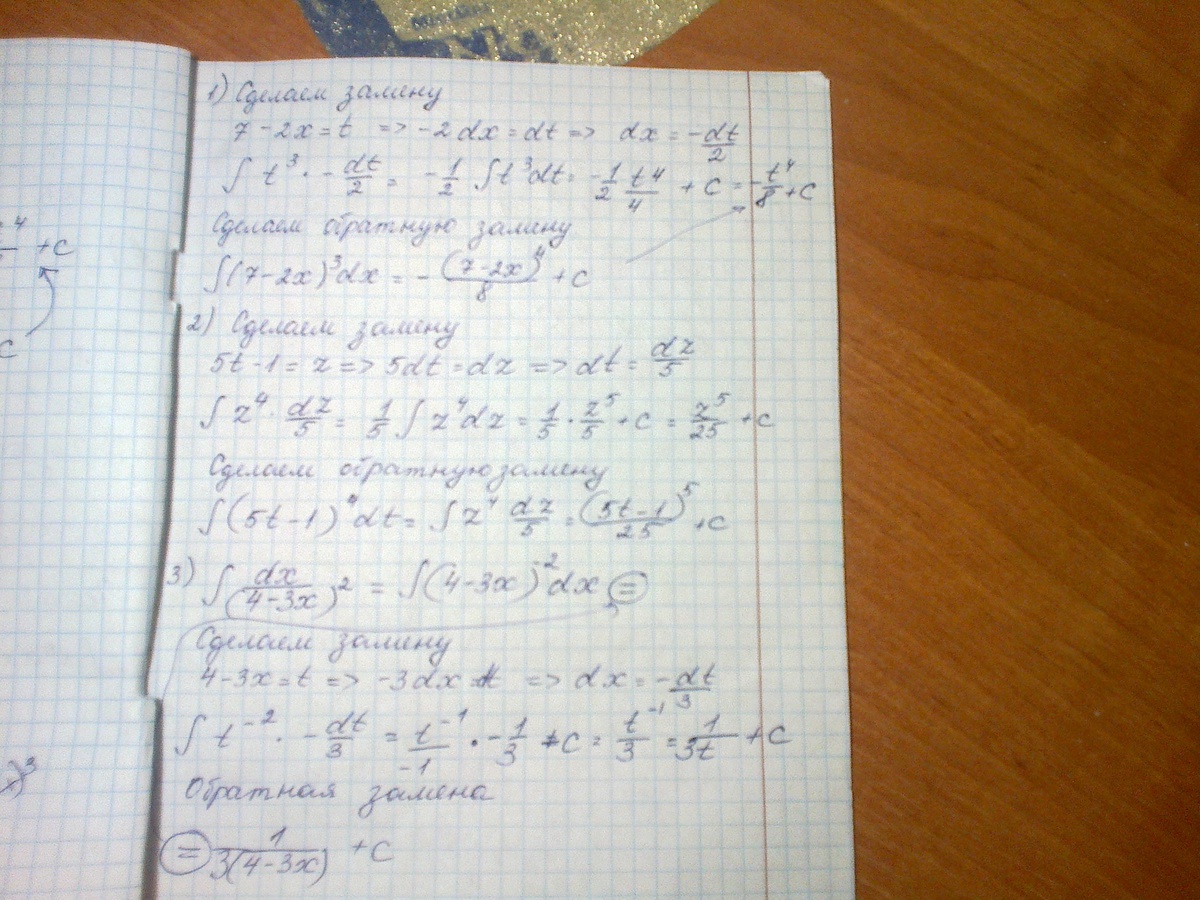 1) Сделаем замену
7 - 2x = t => -2dx = dt => dx = -dt/2
∫ t³ · -dt/2 = -1/2 ∫ t³dt = -1/2 t⁴/4 + C = -t⁴/8 + C
Сделаем обратную замену
∫(7-2x)³dx = -(7-2x)⁴/8 + C
2) Сделаем замену
5t - 1 = z => 5dt = dz => dt = dz/5
∫ z⁴ · dz/5 = 1/5 ∫ z⁴dz = 1/5 · z⁵/5 + C = z⁵/25 + C
Сделаем обратную замену
∫(5t-1)⁴dt = ∫ z⁴ dz/5 = (5t-1)⁵/25 + C
3) ∫ dx/(4-3x)² = ∫(4-3x)⁻²dx =
Сделаем замену
4-3x = t => -3dx = dt => dx = -dt/3
∫ t⁻² · -dt/3 = t⁻¹/-1 · -1/3 + C = t⁻¹/3 = 1/3t + C
Обратная замена
= 1/3(4-3x) + C
4
+ C
C
x)³